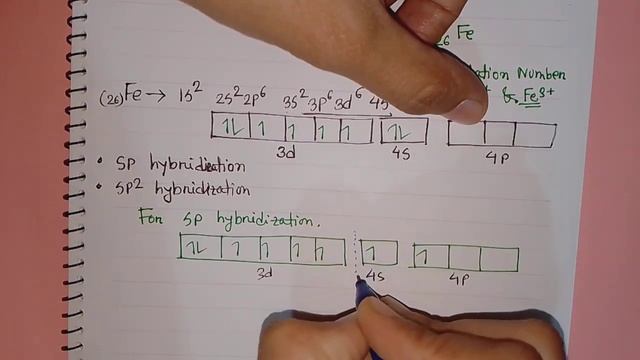 26 Fe
ation Number
(26)Fe → 1s² 2s² 2p⁶ 3s² 3p⁶ 3d⁶ 4s
& Fe³⁺
⥮ ↿ ↿ ↿ ↿ ⥮
3d 4s 4p
• SP hybridization
• SP2 hybridization
For SP hybridization.
⥮ ↿ ↿ ↿ ↿ ↿ ↿
3d 4s 4p